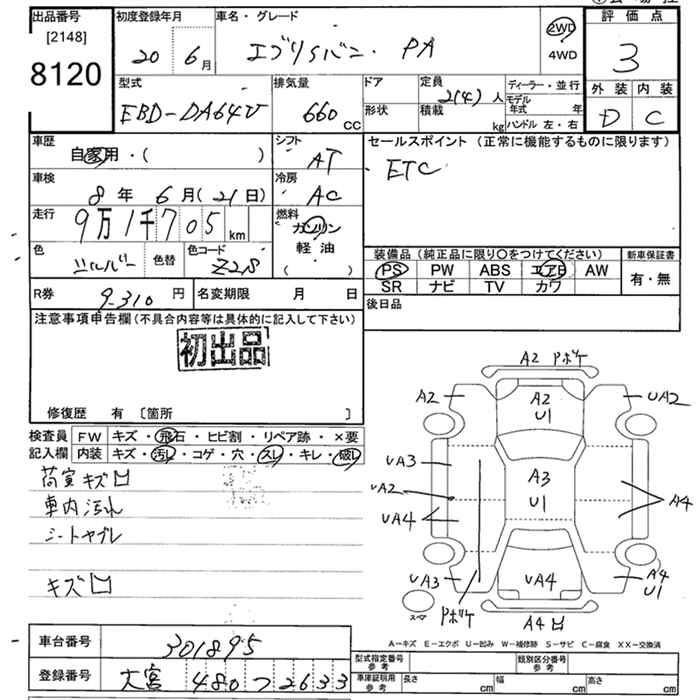 出品番号
[2148]
8120
初度登録年月
20 6月
車名・グレード
エブリイバン・ PA
2WD
4WD
評価点
3
外装 内装
D C
型式
EBD-DA64V
排気量
660 CC
ドア
形状
定員
2(4) 人
積載
kg
ディーラー・並行
モデル年式 年
ハンドル 左・右
車歴
自家用・( )
シフト
AT
セールスポイント (正常に機能するものに限ります)
ETC
車検
8年 6月(21日)
冷房
AC
走行
9万1千705 km
燃料
ガソリン
軽油
( )
色
シルバー
色替
色コード
Z2S
装備品 (純正品に限り○をつけてください)
新車保証書
PS PW ABS エアB AW
SR ナビ TV カワ
有・無
R券
9310 円
名変期限 月 日
後日品
注意事項申告欄 (不具合内容等は具体的に記入して下さい)
初出品
修復歴 有 [箇所 ]
検査員
記入欄
FW キズ・飛石・ヒビ割・リペア跡・×要
内装 キズ・汚レ・コゲ・穴・スレ・キレ・破レ
荷室キズ凹
車内汚れ
シートヤブレ
キズ凹
A2 Pボケ
A2
A2
U1
UA2
UA3
UA2
UA4
A3
U1
A4
UA3
UA4
A4
U1
Pボケ
A4凹
スペア
A-キズ E-エクボ U-凹み W-補修跡 S-サビ C-腐食 XX-交換済
車台番号
301895
登録番号
大宮 480 つ 2633
型式指定番号
参考
類別区分番号
参考
車庫証明用
参考
長さ cm
幅 cm
高さ cm